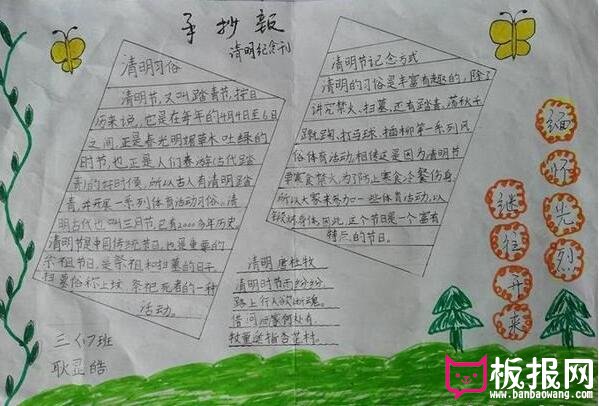 手抄报
清明纪念刊
清明习俗
清明节,又叫踏青节,按阳
历来说,它是在每年的4月4日至6日
之间,正是春光明媚草木吐绿的
时节,也正是人们春游(古代踏
青)的好时候,所以古人有清明踏
青,并开展一系列体育活动习俗。清
明古代也叫三月节,已有2000多年历史。
清明节是中国传统节日,也是重要的
祭祀节日,是祭祖和扫墓的日子。
扫墓俗称上坟,祭祀死者的一种
活动。
清明节记念方式
清明的习俗是丰富有趣的,除了
讲究禁火、扫墓,还有踏青、荡秋千
蹴鞠、打马球、插柳等一系列风
俗体育活动,相传这是因为清明节
要寒食禁火,为了防止寒食冷餐伤身,
所以大家来参加一些体育活动,以
锻炼身体,因此,这个节日是一个富有
特点的节日。
清明 唐杜牧
清明时节雨纷纷,
路上行人欲断魂。
借问酒家何处有,
牧童遥指杏花村。
缅怀先烈
继往开来
三(7)班
耿显皓
板报网
www.banbaowang.com